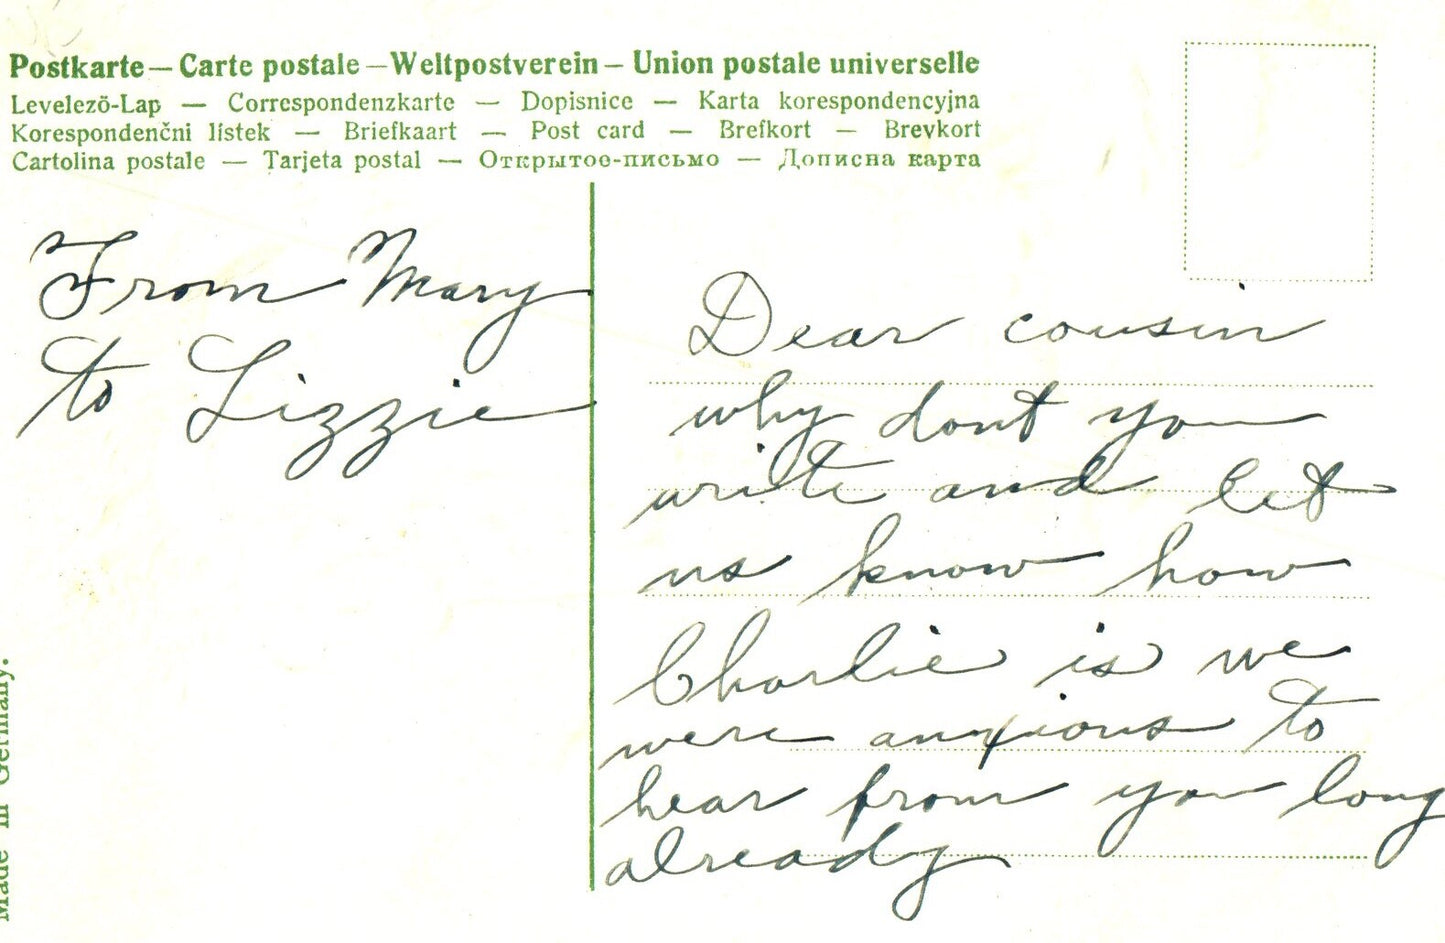 Postkarte — Carte postale — Weltpostverein — Union postale universelle
Levelezö-Lap — Correspondenzkarte — Dopisnice — Karta korespondencyjna
Korespondenčni listek — Briefkaart — Post card — Brefkort — Brevkort
Cartolina postale — Tarjeta postal — Открытое-письмо — Дописна карта
From Mary
to Lizzie
Dear cousin
why dont you
write and let
us know how
Charlie is we
were anxious to
hear from you long
already
Made in Germany.